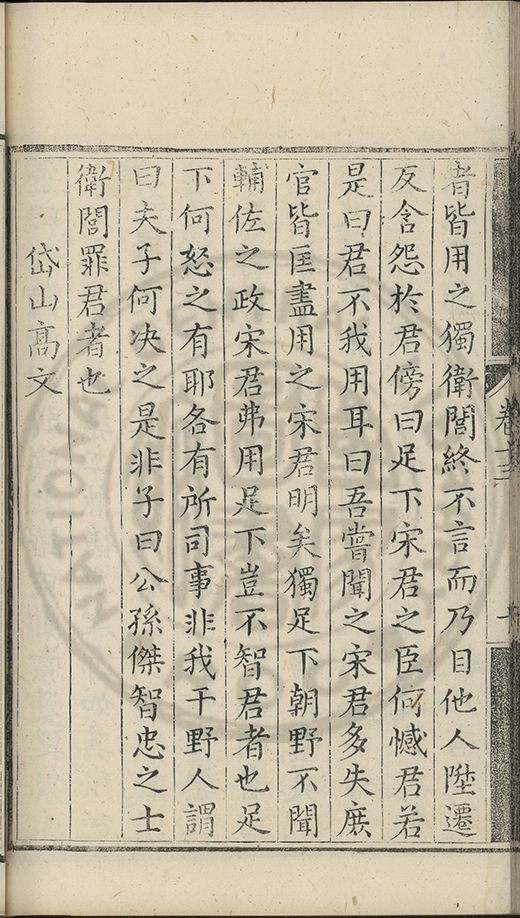 者皆用之獨衛誾終不言而乃目他人陞遷
反含怨於君傍曰足下宋君之臣何憾君若
是曰君不我用耳曰吾嘗聞之宋君多失庶
官皆匡盡用之宋君明矣獨足下朝野不聞
輔佐之政宋君弗用足下豈不智君者也足
下何怒之有耶各有所司事非我干野人謂
曰夫子何决之是非子曰公孫傑智忠之士
衛誾罪君者也
岱山高文
卷十三